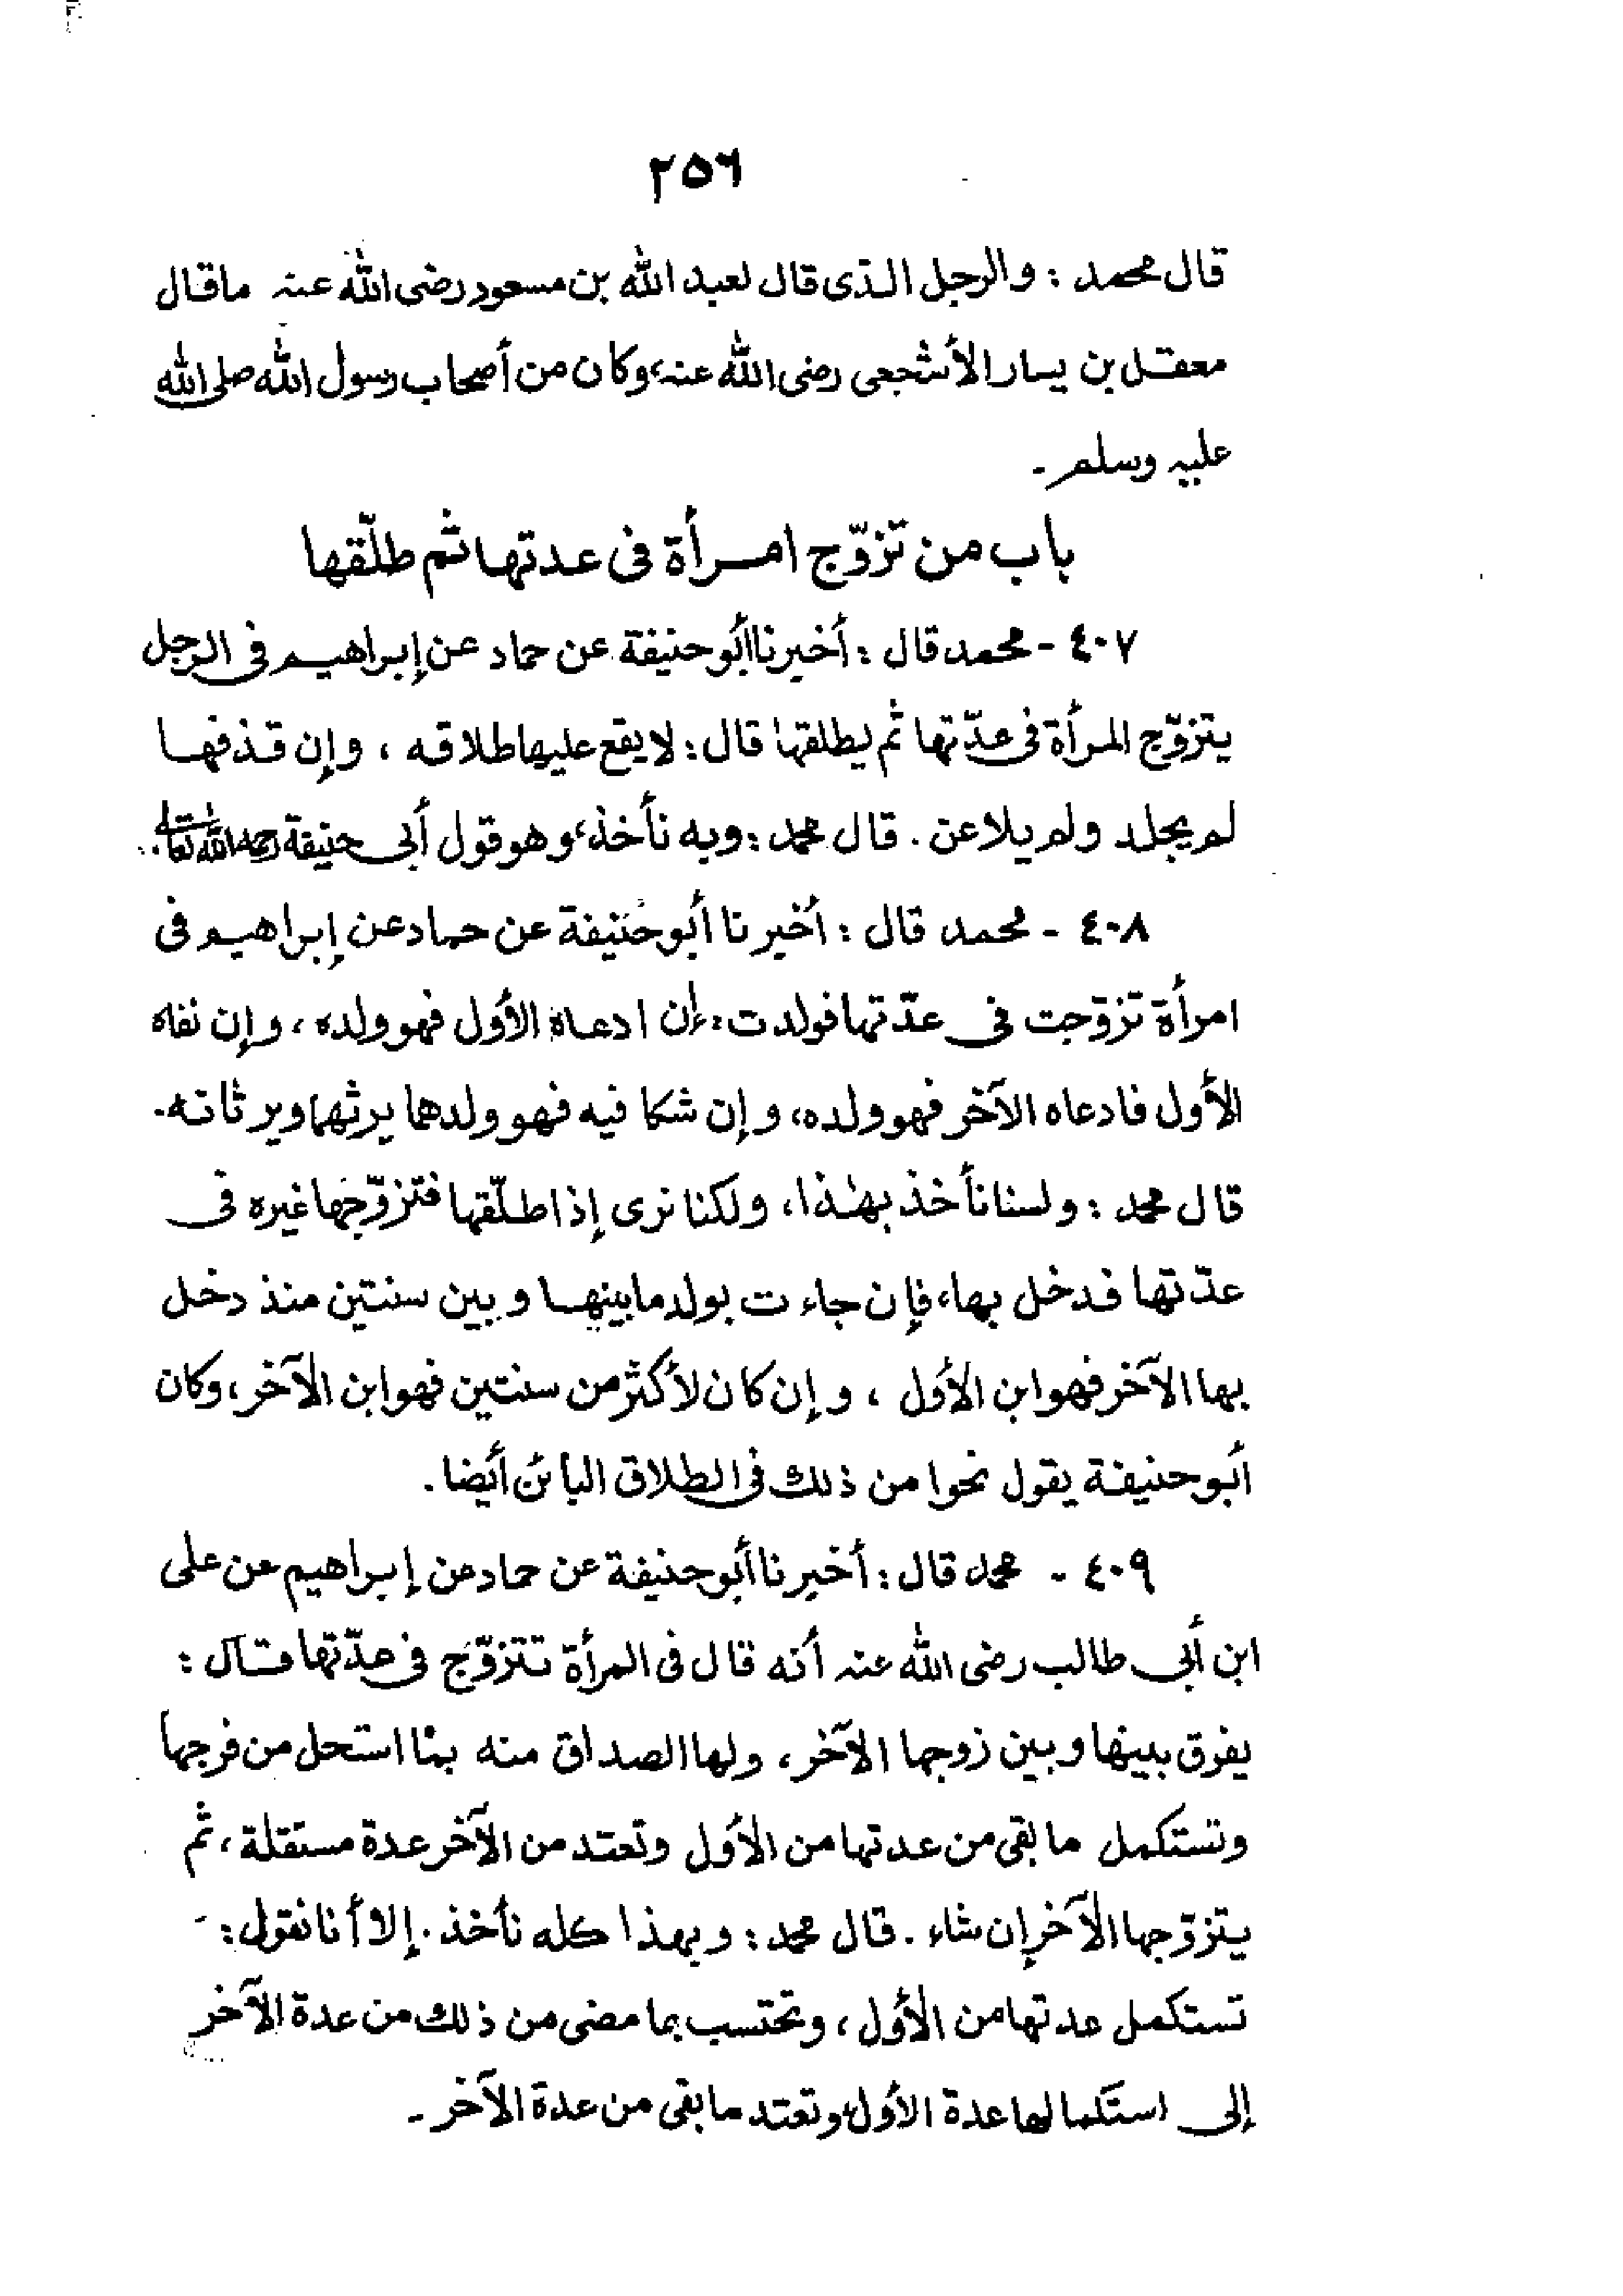 ٢٥٦
قال محمد : والرجل الذى قال لعبد الله بن مسعود رضى الله عنه ماقال
معقل بن يسار الأشجعى رضى الله عنه، وكان من أصحاب رسول الله صلى الله
عليه وسلم -
باب من تزوّج امرأة فى عدتها ثم طلّقها
٤٠٧ - محمد قال : أخبرنا أبو حنيفة عن حماد عن إبراهيم فى الرجل
يتزوّج المرأة فى عدّتها ثم يطلقها قال : لا يقع عليها طلاقه ، وإن قذفها
لم يجلد ولم يلاعن . قال محمد : وبه نأخذ، وهو قول أبى حنيفة رحمه الله تعالى .
٤٠٨ - محمد قال : أخبرنا أبو حنيفة عن حماد عن إبراهيم فى
امرأة تزوّجت فى عدّتها فولدت : إن ادعاه الأول فهو ولده ، وإن نفاه
الأول فادعاه الآخر فهو ولده، وإن شكا فيه فهو ولدهما يرثهما ويرثانه .
قال محمد : ولسنا نأخذ بهذا، ولكنا نرى إذا طلّقها فتزوّجها غيره فى
عدّتها فدخل بها، فإن جاءت بولد ما بينها وبين سنتين منذ دخل
بها الآخر فهو ابن الأول ، وإن كان لأكثر من سنتين فهو ابن الآخر، وكان
أبو حنيفة يقول نحوا من ذلك فى الطلاق البائن أيضا .
٤٠٩ - محمد قال : أخبرنا أبو حنيفة عن حماد عن إبراهيم عن على
ابن أبى طالب رضى الله عنه أنه قال فى المرأة تتزوّج فى عدّتها قال :
يفرق بينها وبين زوجها الآخر، ولها الصداق منه بما استحل من فرجها
وتستكمل ما بقى من عدتها من الأول وتعتد من الآخر عدة مستقلة ، ثم
يتزوّجها الآخر إن شاء . قال محمد : وبهذا كله نأخذ . إلا أنا نقول : -
تستكمل عدتها من الأول ، وتحتسب بما مضى من ذلك من عدة الآخر
إلى استكمالها عدة الأول، وتعتد ما بقى من عدة الآخر -